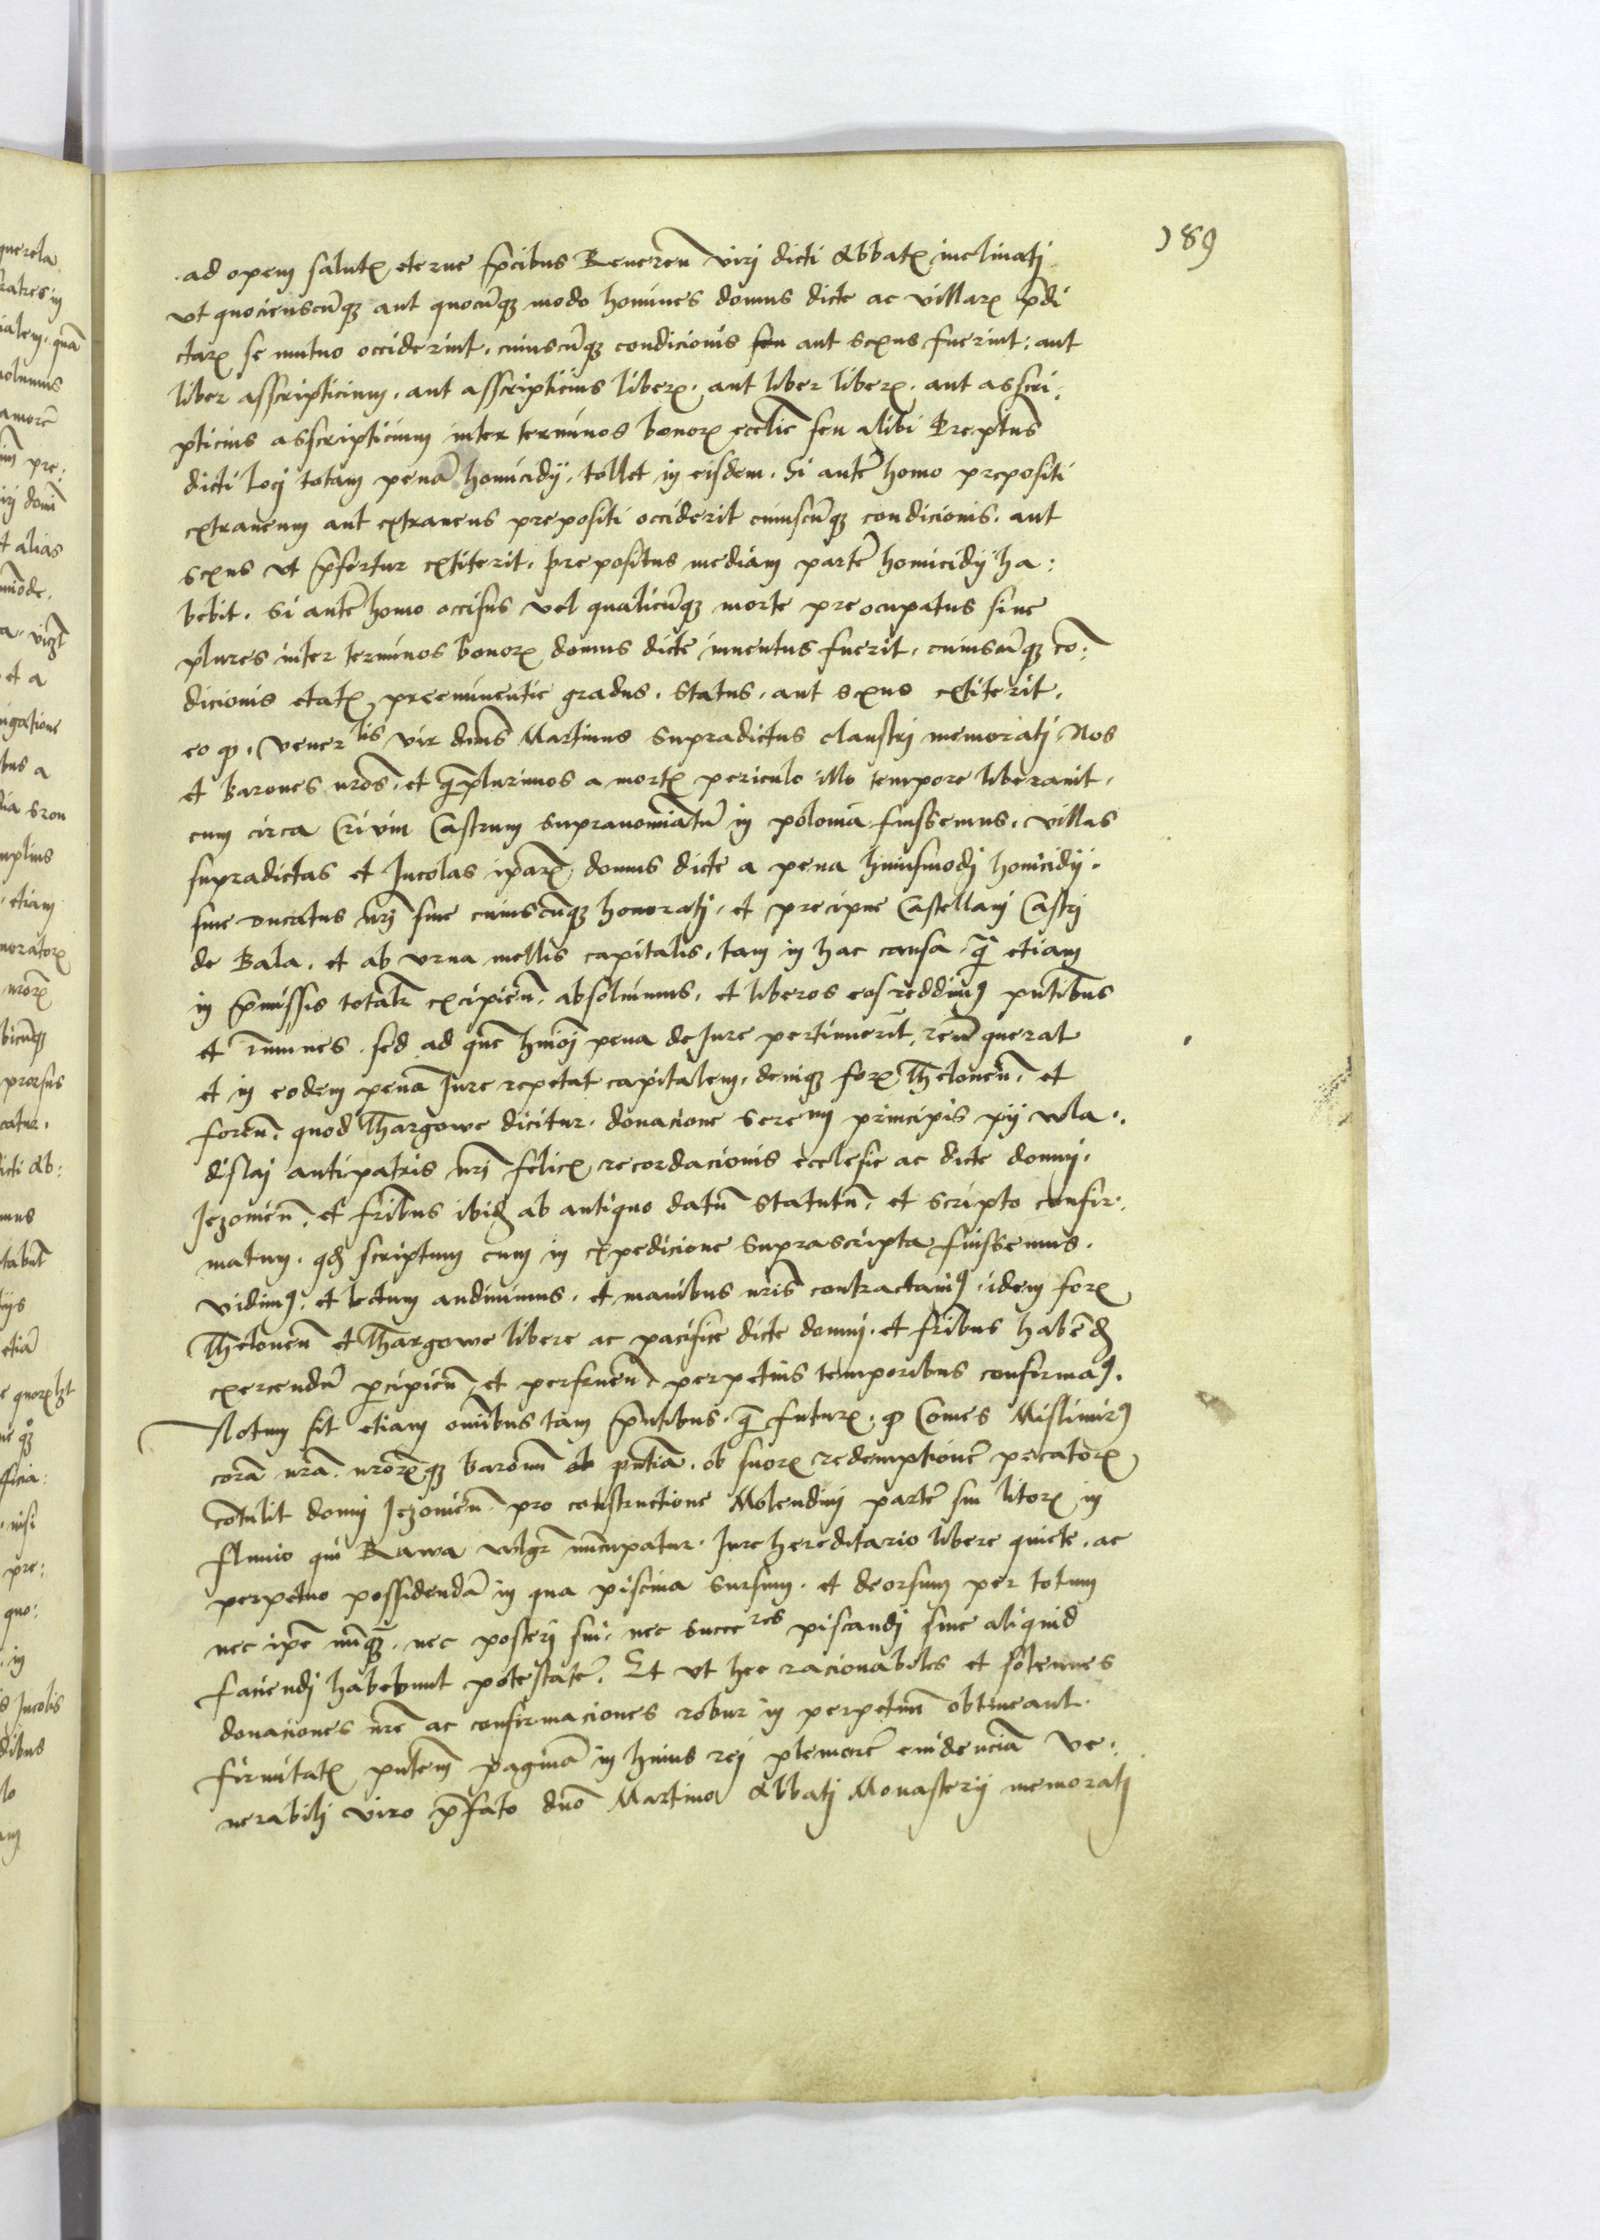 189
ad opem salutꝫ eterne p̄cibus Reueren̄ virj dicti Abbatꝫ inclinatj
vt quocienscūqꝫ aut quocūqꝫ modo homines domus dicte ac villarꝫ p̄di
ctarꝫ se mutuo occiderint, cuiuscūqꝫ condicionis seu aut sexus fuerint: aut
liber asscripticium, aut asscripticius liberꝫ, aut liber liberꝫ, aut asscri,
pticius asscripticium inter terminos bonorꝫ eccl̄ie seu alibi Prep̄tus
dicti locj totam penā homicidij, tollet in eisdem. Si autē homo prepositi
extraneum aut extraneus prepositi occiderit cuiuscūqꝫ condicionis, aut
sexus vt p̄fertur extiterit, prepositus mediam partē homicidij ha:
bebit. Si autē homo occisus vel qualicūqꝫ morte preocupatus siue
plures inter terminos bonorꝫ domus dicte inuentus fuerit, cuiuscūqꝫ cō:
dicionis etatꝫ preeminentie gradus, status, aut sexus extiterit,
eo qꝫ, vener lis vir dn̄s Martinus supradictus claustrj memoratj Nos
et barones nr̄os, et q̄plurimos a mortꝫ periculo illo tempore liberauit,
cum circa Crivin Castrum supranomiatū in polonia fuissemus, villas
supradictas et Incolas ip̄arꝫ domus dicte a pena huiusmodj homicidij.
siue ducatus nr̄j siue cuiuscūqꝫ honoratj, et precipue Castellanj Castrj
de Bala, et ab vrna mellis capitalis, tam in hac causa q̄ etiam
in p̄missis totalr̄ excipien̄, absoluimus, et liberos eos reddimꝰ pn̄tibus
et īmunes, sed ad quē hmōj pena de Jure pertinuerit, reū querat
et in eodem penā Jure repetat capitalem, deniqꝫ forꝫ Theloneū, et
foreū, quod Thargowe dicitur, donacione sere mi principis pij wla.
dislaj antipatris nr̄j felicꝫ recordacionis ecclesie ac dicte domuj,
Jezouien̄, et fr̄ibus ibidꝫ ab antiquo datū statutū, et scripto confir.
matum, qđ scriptum cum in expedicione suprascripta fuissemus,
vidimꝰ, et lectum audiuimus, et manibus nr̄is contractauimꝰ, idem forꝫ
Theloneū et Thargowe libere ac pacifice dicte domuj, et fr̄ibus habēđ
exercendū p̄cipien̄, et perfruen̄ perpetuis temporibus confirmaꝰ.
Notum sit etiam om̄ibus tam p̄ntibus, q̄ futurꝫ, qꝫ Comes Mislimirꝰ
corā nr̄a, nr̄orꝫqꝫ baronū ob pn̄tiā, ob suorꝫ redemptionē pecatorꝫ
cōtulit domuj Jezouien̄ pro constructione Molendinj partē sui litorꝫ in
fluuio qui Rawa vulgr̄ nūcupatur, Jure hereditario libere quiete, ac
perpetuo possidendā in qua piscina sursum, et deorsum per totum
nec ip̄e nūqꝫ, nec posterj sui, nec succe res piscandj siue aliquid
faciendj habebunt potestatē, Et vt hec racionabiles et solennes
donaciones nr̄e ac confirmaciones robur in perpetuū obtineant
firmitatꝫ pn̄tem paginā in huius rej plenioré euidenciā ve:
nerabilj viro p̄fato dn̄o Martino Abbatj Monasterij memoratj